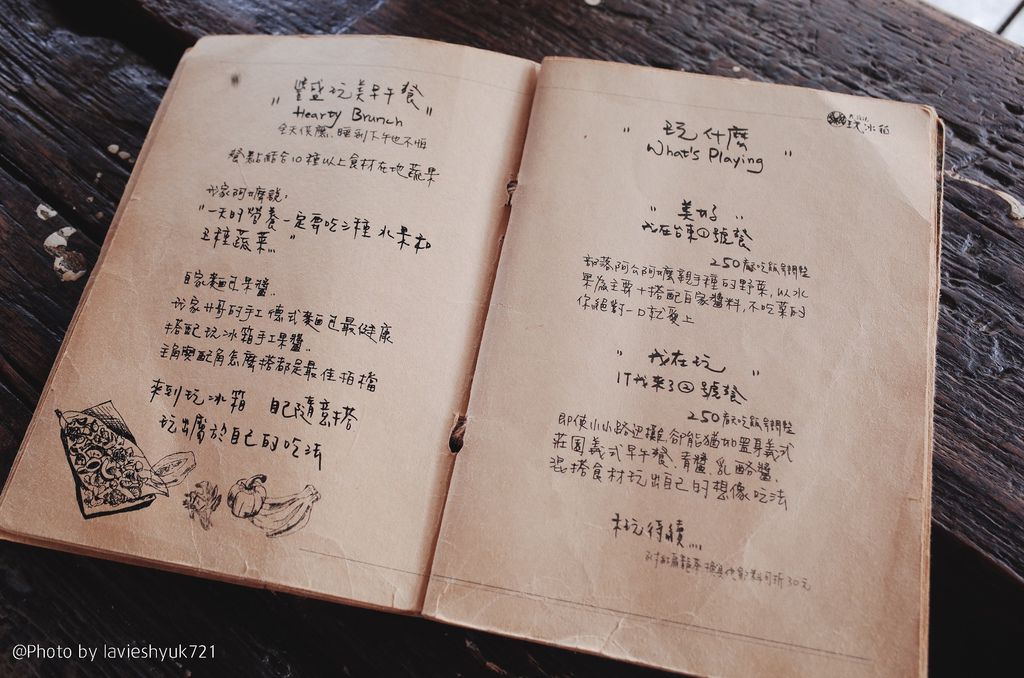 " 豐盛玩美早午餐 "
Hearty Brunch
全天供應、睡到下午也不怕
餐點結合10種以上食材在地蔬果
我家阿嬤說:
"一天的營養一定要吃三種水果和
五種蔬菜..."
自家麵包果醬.
我家哥的手工德式麵包最健康
搭配玩冰箱手工果醬.
主角與配角怎麼搭都是最佳拍檔
來到玩冰箱 自己隨意搭
玩出屬於自己的吃法
玩冰箱
" 玩什麼 "
What's Playing
" 美好 "
我在台東①號餐
250
部落阿公阿嬤親手種的野菜,以水
果為主要+搭配自家醬料,不吃菜的
你絕對一口就愛上
" 我在玩 "
IT我來了②號餐
250
即使小小路邊攤、卻能猶如置身義式
莊園義式早午餐、青醬、乳酪醬、
混搭食材玩出自己的想像吃法
未玩待續...
可折30元
@Photo by lavieshyuk721